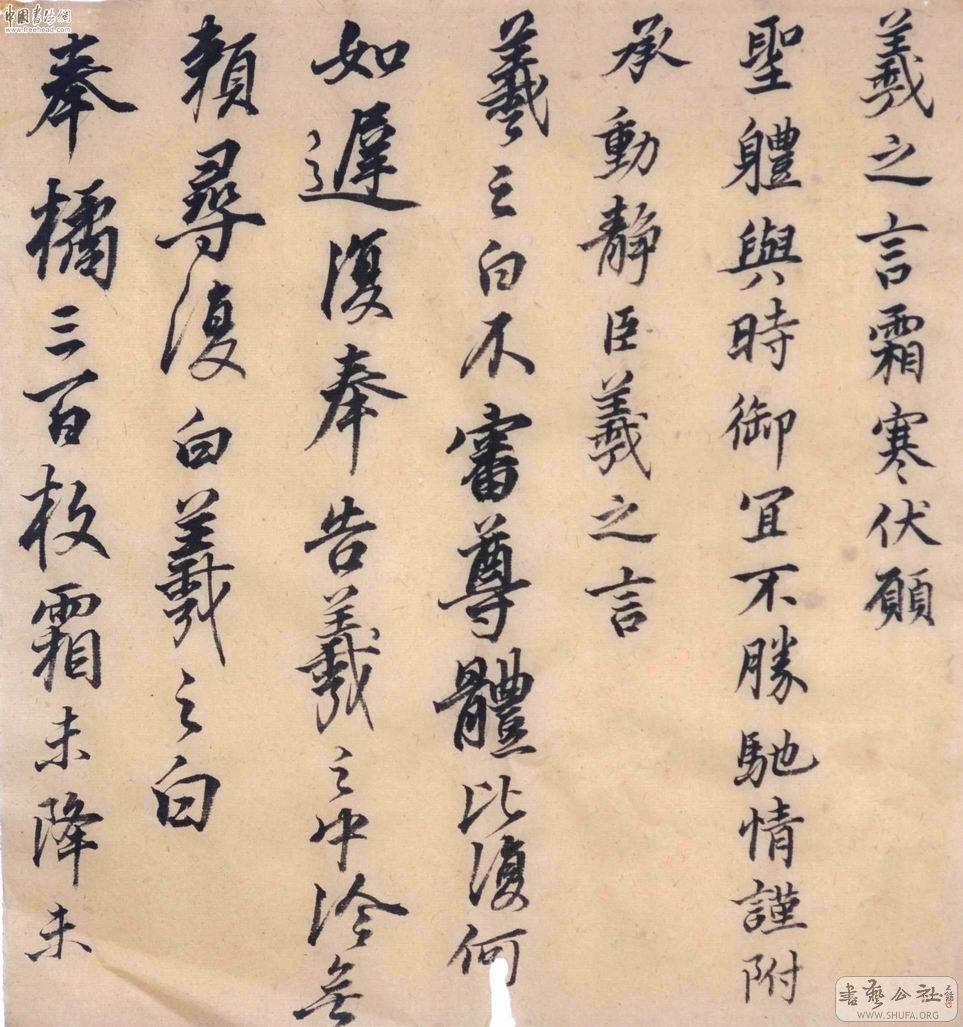 羲之言霜寒伏願
聖體與時御宜不勝馳情謹附
承動靜臣羲之言
羲之白不審尊體比復何
如遲復奉告羲之中冷無
賴尋復白羲之白
奉橘三百枚霜未降未
中国书法網
www.freehead.com
書藝公社
WWW.SHUFA.ORG